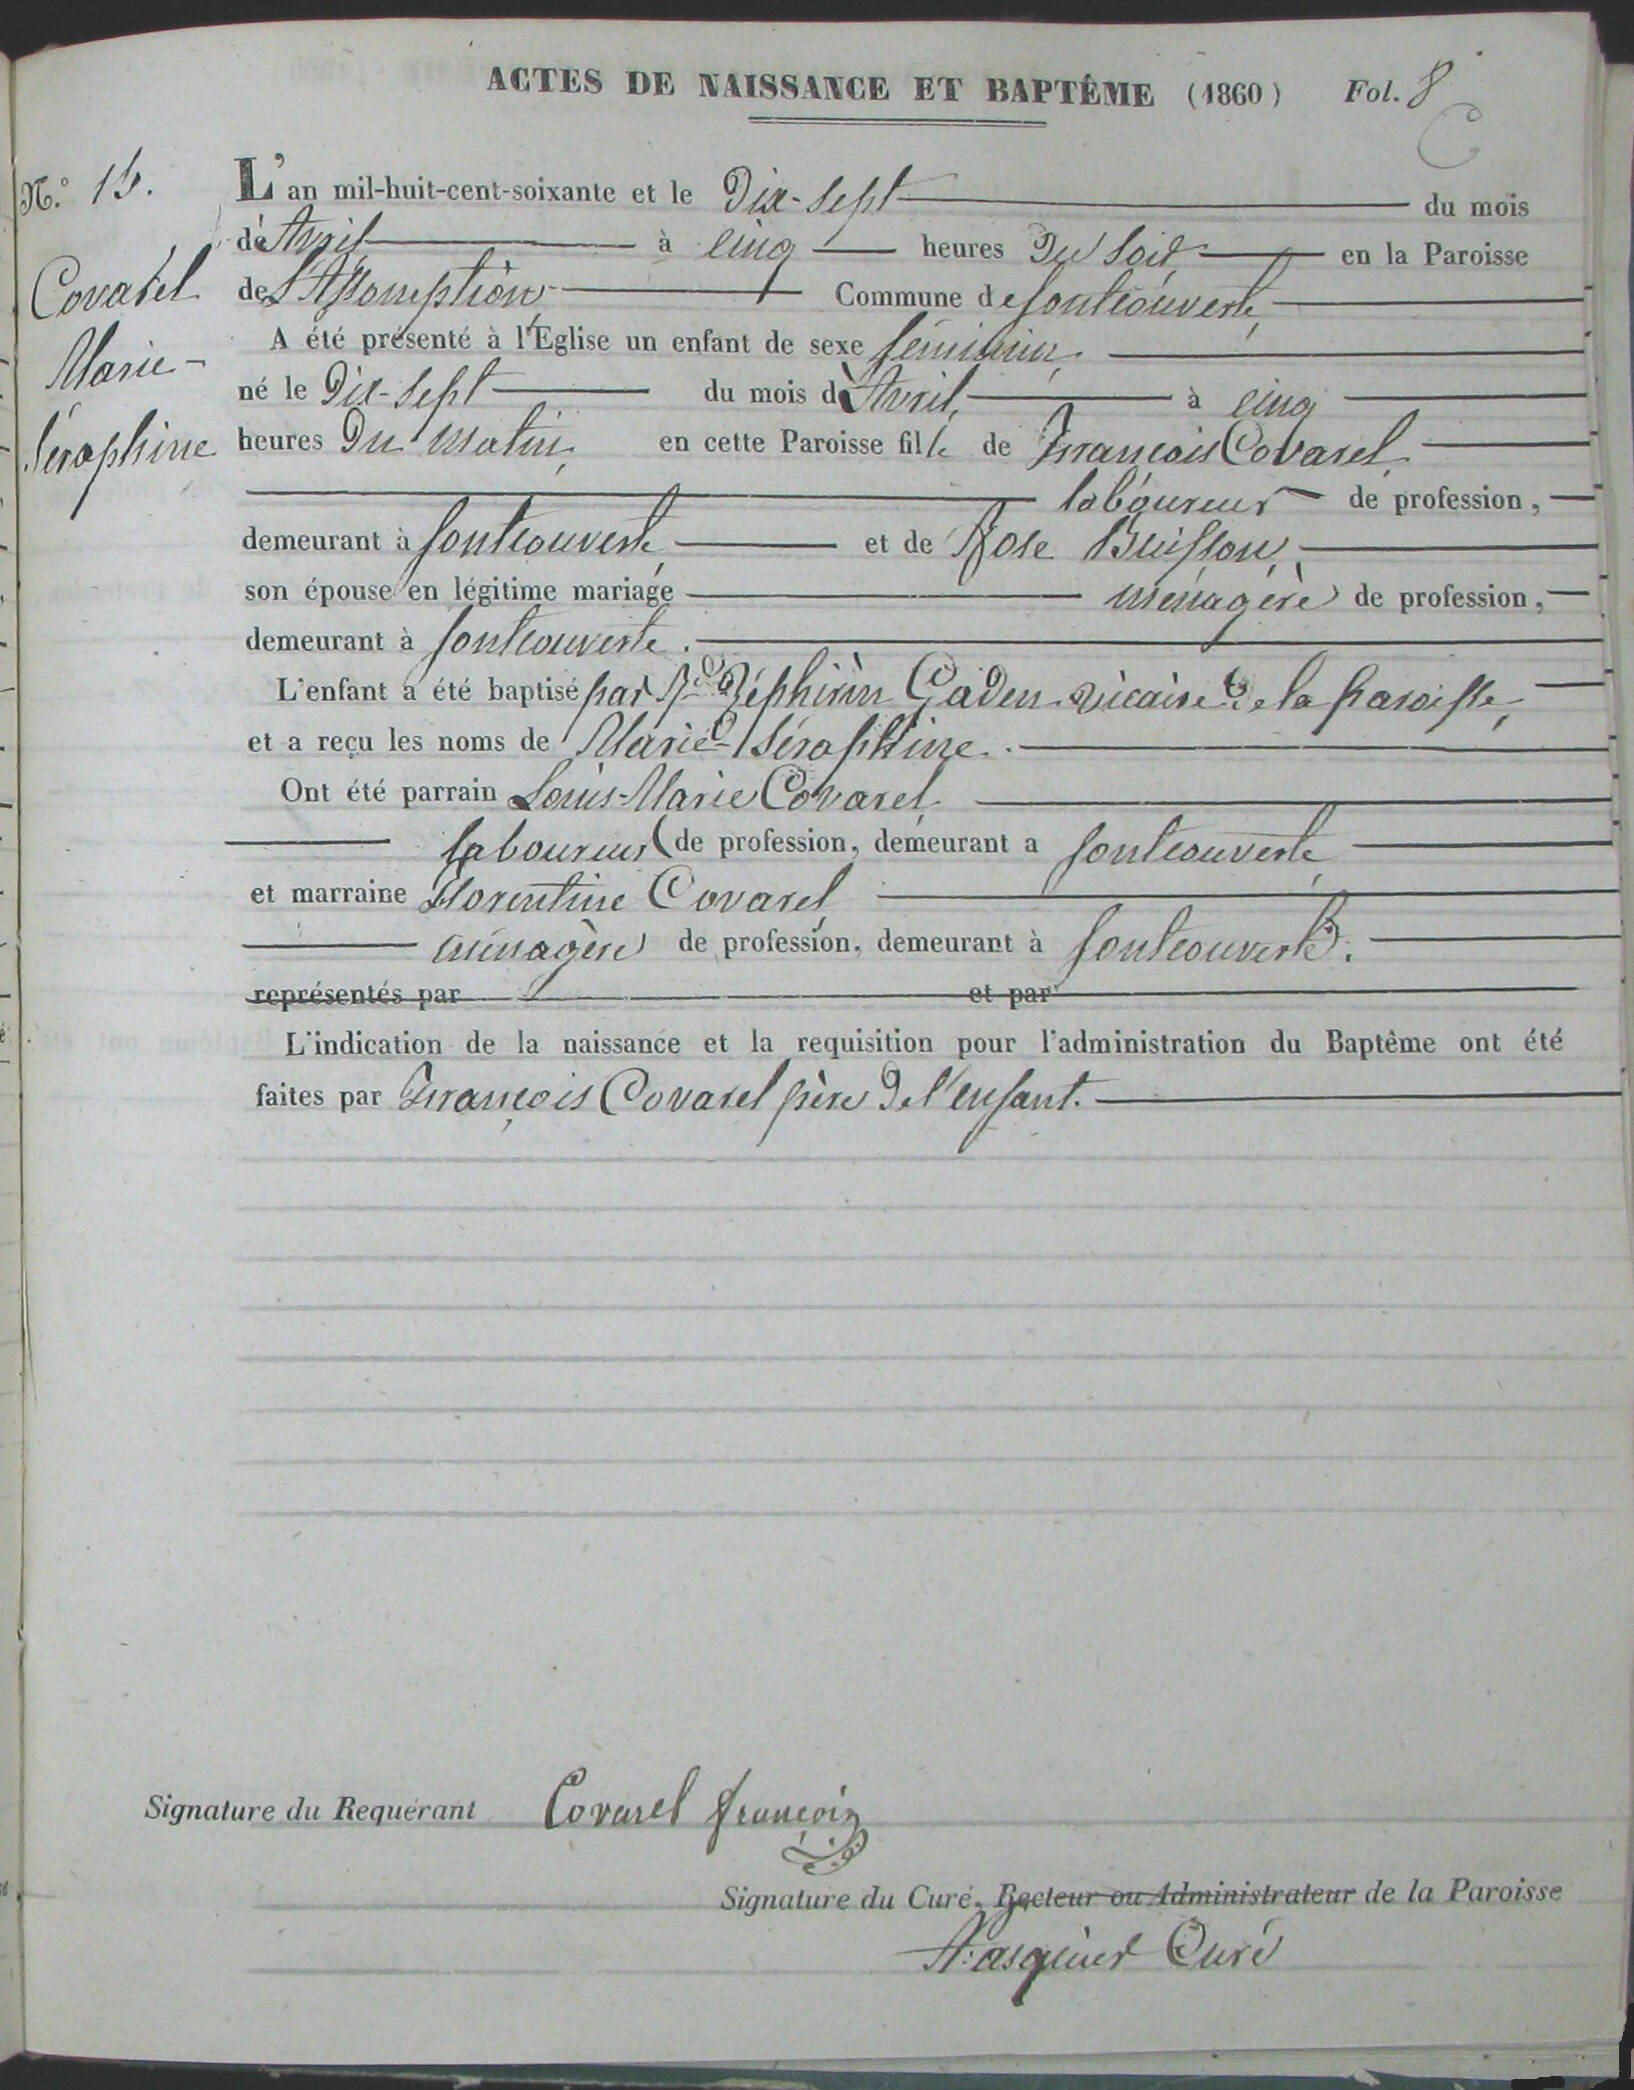 ACTES DE NAISSANCE ET BAPTÊME (1860) Fol. 8
N.° 15.
Covarel
Marie-
Séraphine
L'an mil-huit-cent-soixante et le Dix-Sept du mois
de Avril à cinq heures Du Soir en la Paroisse
de L'Assomption Commune de fontcouverte,
A été présenté à l'Eglise un enfant de sexe féminin,
né le Dix-Sept du mois d'Avril, à cinq
heures Du matin, en cette Paroisse fille de François Covarel,
laboureur de profession,
demeurant à fontcouverte, et de Rose Buisson,
son épouse en légitime mariage ménagère de profession,
demeurant à fontcouverte.
L'enfant a été baptisé par Rd Zéphirin Gaden vicaire de la paroisse,
et a reçu les noms de Marie-Séraphine.
Ont été parrain Louis-Marie Covarel,
laboureur de profession, demeurant a fontcouverte,
et marraine Florentine Covarel,
ménagère de profession, demeurant à fontcouverte.
représentés par et par
L'indication de la naissance et la requisition pour l'administration du Baptême ont été
faites par François Covarel père de l'enfant.
Signature du Requérant Covarel françois
Signature du Curé, Recteur ou Administrateur de la Paroisse
Curé